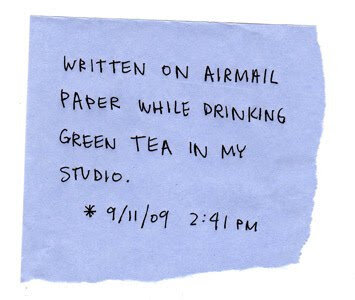 WRITTEN ON AIRMAIL
PAPER WHILE DRINKING
GREEN TEA IN MY
STUDIO.
* 9/11/09 2:41 PM